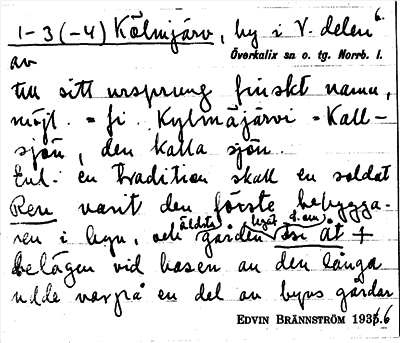 1-3 (-4) Kölmjärv, by i V. delen 6.
av Överkalix sn o. tg. Norrb. l.
till sitt ursprung finskt namn,
möjl. = fi. Kylmäjärvi = Kall-
sjön, den kalla sjön.
Enl. en tradition skall en soldat
Ren varit den förste bebygga-
ren i byn, och äldsta gården
belägen vid basen av den långa
udde varpå en del av byns gårdar
EDVIN BRÄNNSTRÖM 1936.